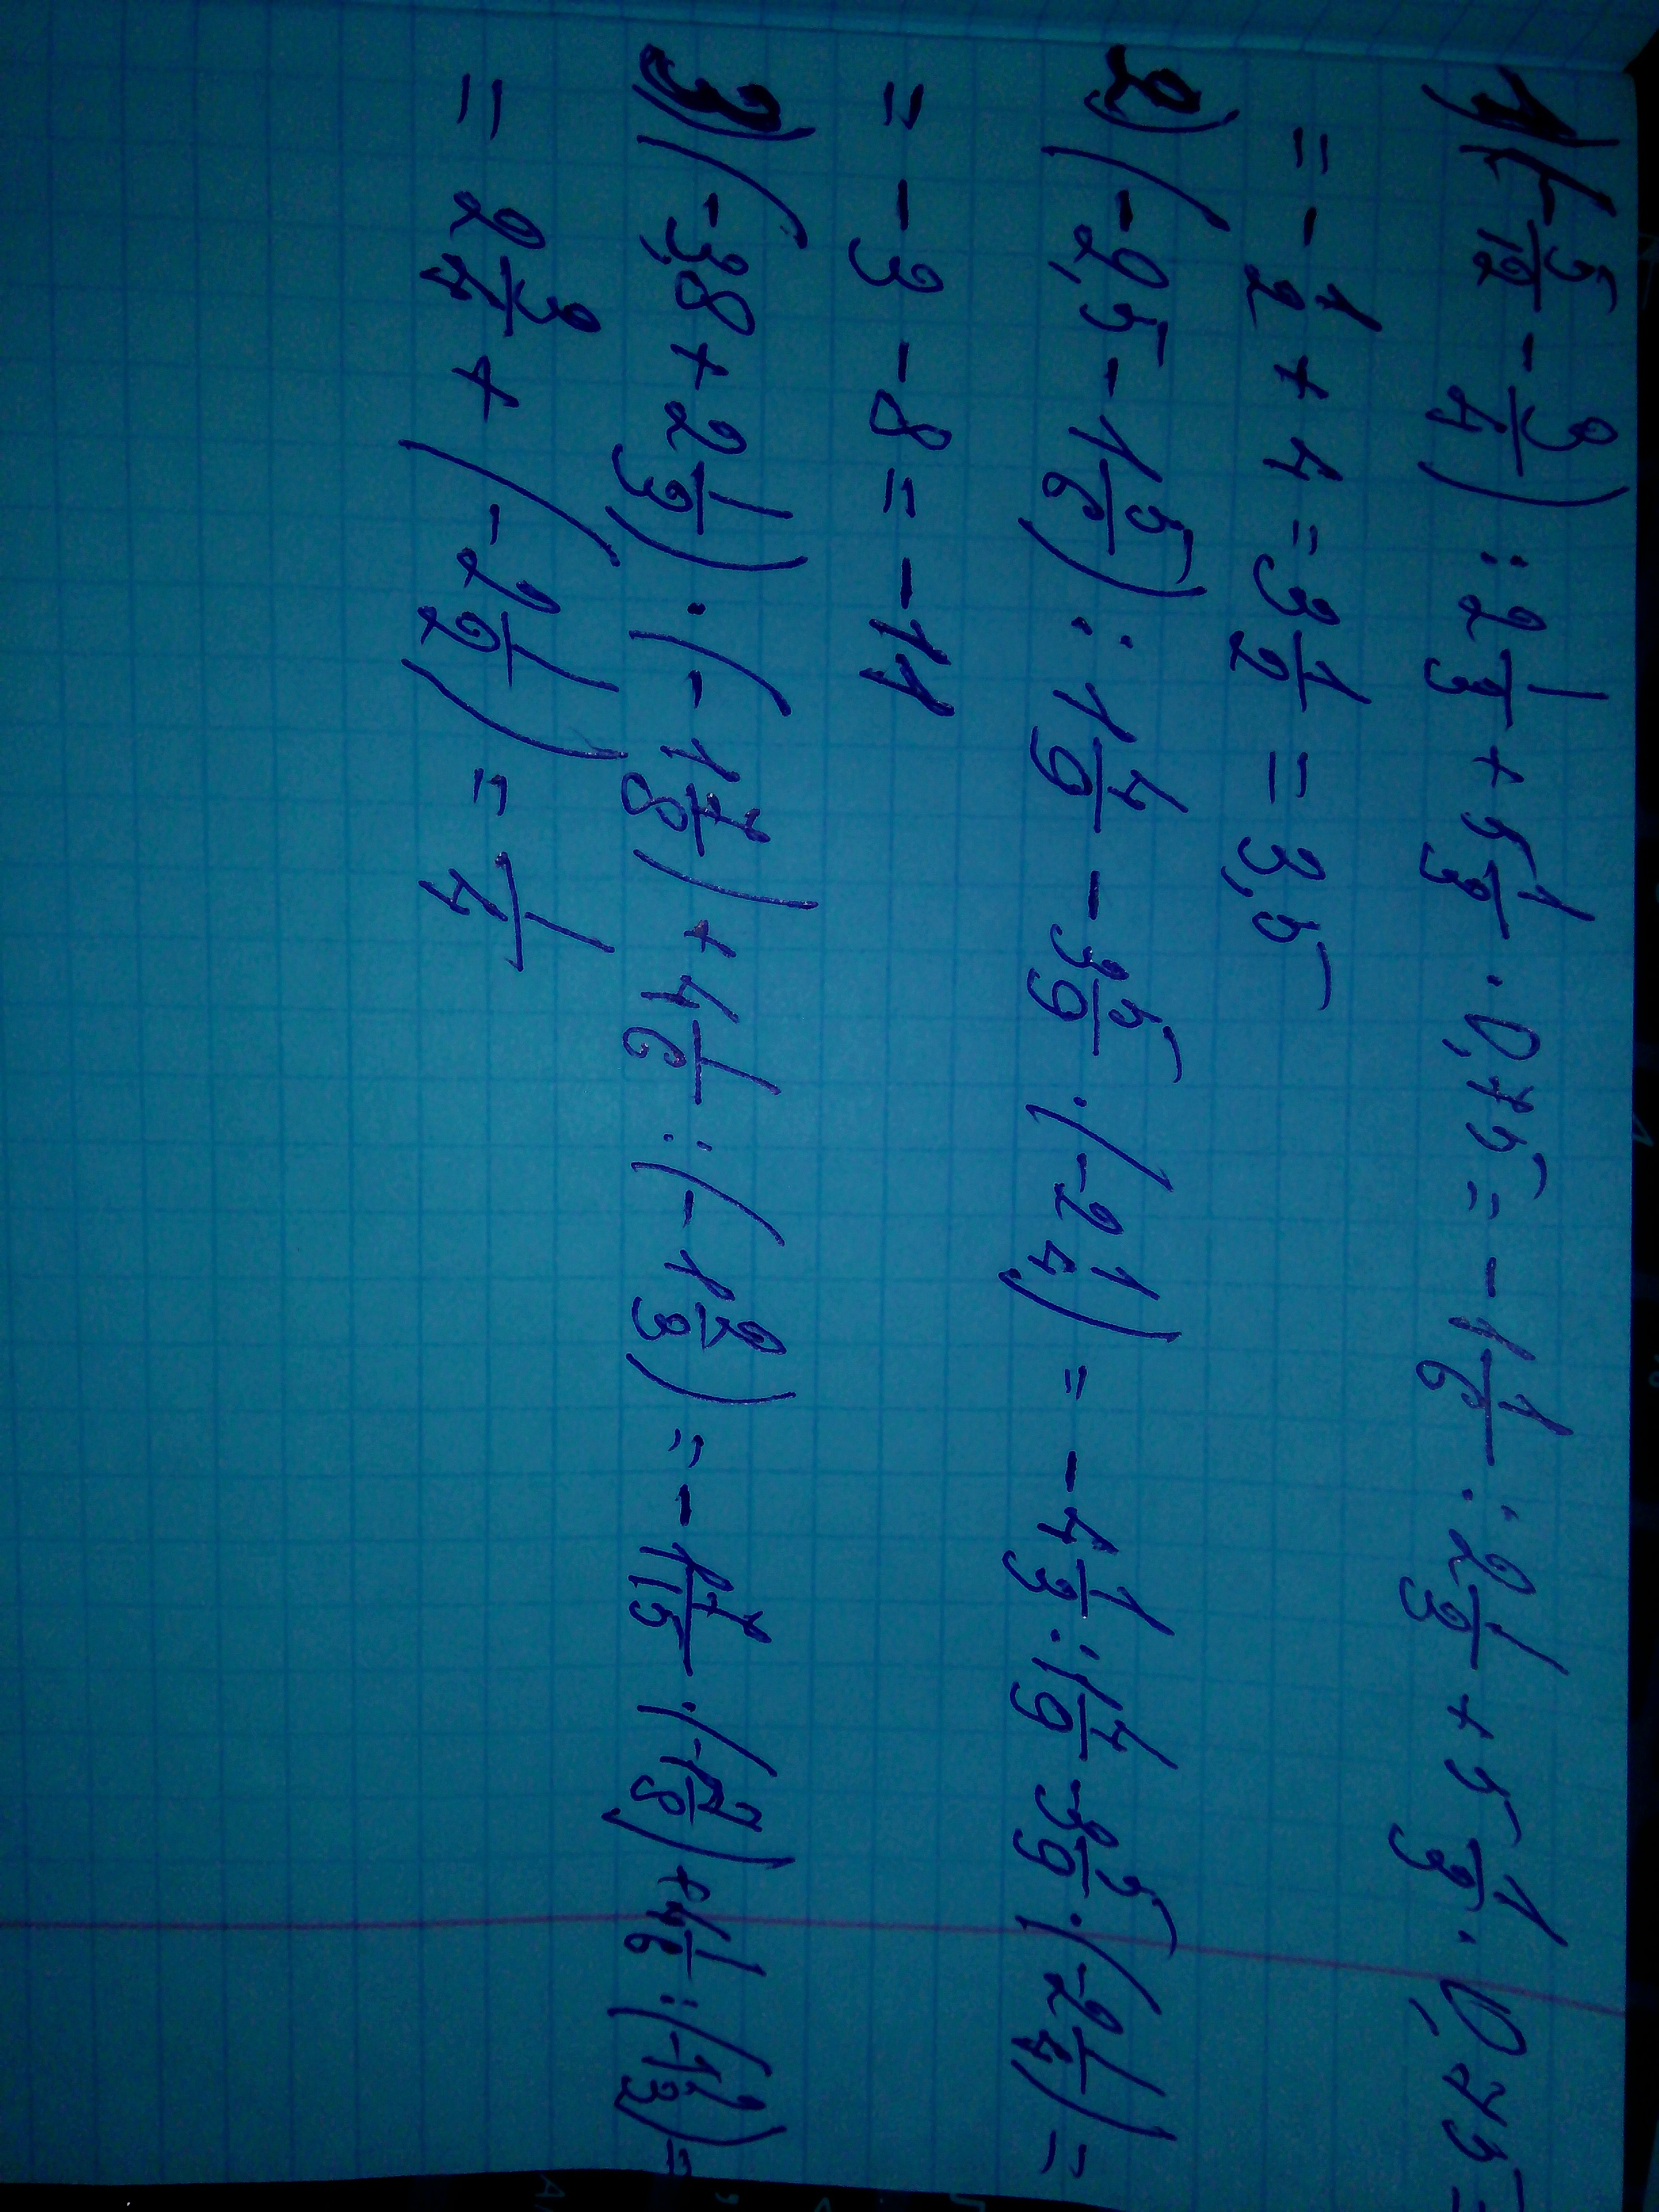 1) (-5/12 - 3/4) : 2 1/3 + 5 1/3 · 0,75 = -1 1/6 : 2 1/3 + 5 1/3 · 0,75 =
= -1/2 + 4 = 3 1/2 = 3,5
2) (-2,5 - 1 5/6) : 1 4/9 - 3 5/9 · (-2 1/4) = -4 1/3 : 1 4/9 - 3 5/9 · (-2 1/4) =
= -3 - 8 = -11
3) (-3,8 + 2 1/3) · (-1 7/8) + 4 1/6 : (-1 2/3) = -1 7/15 · (-1 7/8) + 4 1/6 : (-1 2/3) =
= 2 3/4 + (-2 1/2) = 1/4